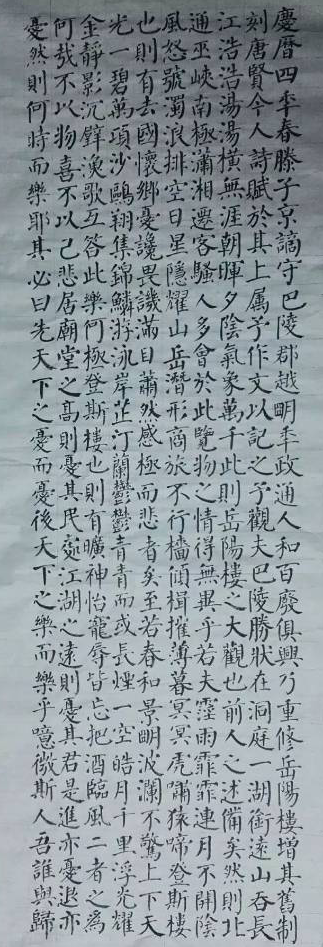 慶曆四年春滕子京謫守巴陵郡越明年政通人和百廢俱興乃重修岳陽樓增其舊制
刻唐賢今人詩賦於其上属予作文以記之予觀夫巴陵勝狀在洞庭一湖銜遠山吞長
江浩浩湯湯橫無涯朝暉夕陰氣象萬千此則岳陽樓之大觀也前人之述備矣然則北
通巫峽南極瀟湘遷客騷人多會於此覽物之情得無異乎若夫霪雨霏霏連月不開陰
風怒號濁浪排空日星隱耀山岳潛形商旅不行檣傾楫摧薄暮冥冥虎嘯猿啼登斯樓
也則有去國懷鄉憂讒畏譏滿目蕭然感極而悲者矣至若春和景明波瀾不驚上下天
光一碧萬頃沙鷗翔集錦鱗游泳岸芷汀蘭鬱鬱青青而或長煙一空皓月千里浮光耀
金靜影沉璧漁歌互答此樂何極登斯樓也則有曠神怡寵辱皆忘把酒臨風二者之為
何哉不以物喜不以己悲居廟堂之高則憂其民處江湖之遠則憂其君是進亦憂退亦
憂然則何時而樂耶其必曰先天下之憂而憂後天下之樂而樂乎噫微斯人吾誰與歸